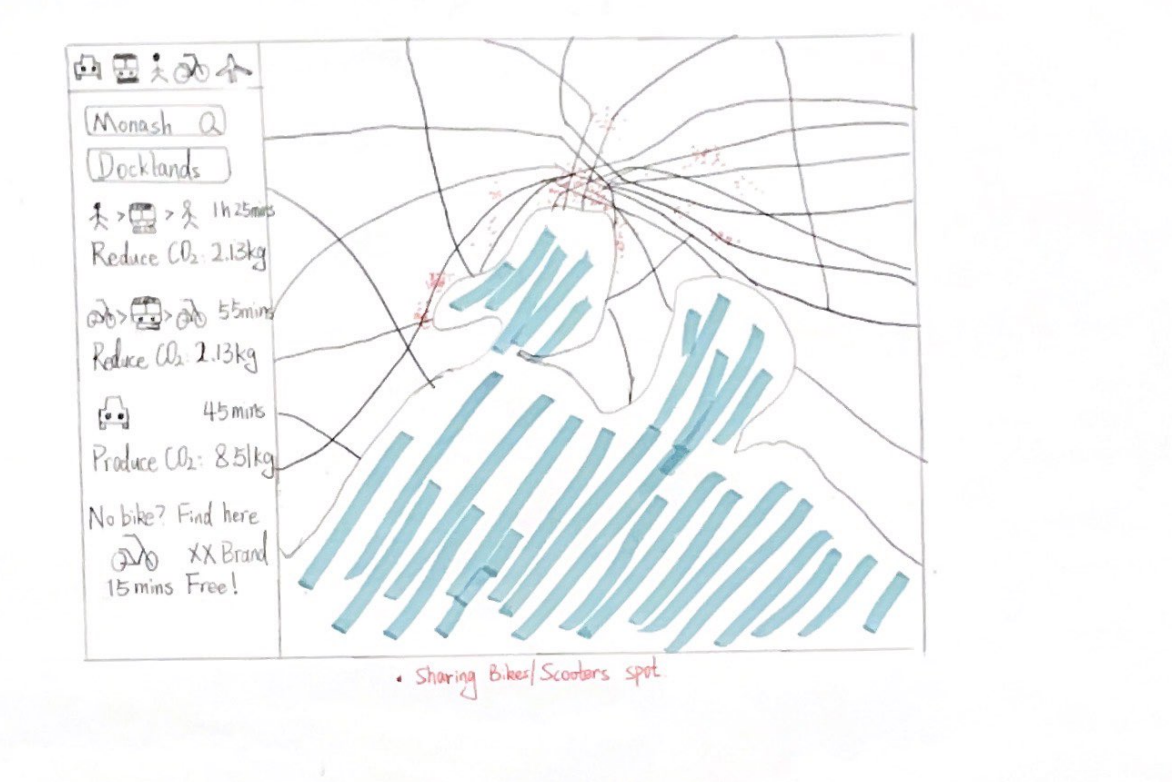 Monash
Docklands
> > 1h 25mins
Reduce CO₂: 2.13kg
> > 55mins
Reduce CO₂: 2.13kg
45mins
Produce CO₂: 8.51kg
No bike? Find here
XX Brand
15 mins Free!
• Sharing Bikes/Scooters spot